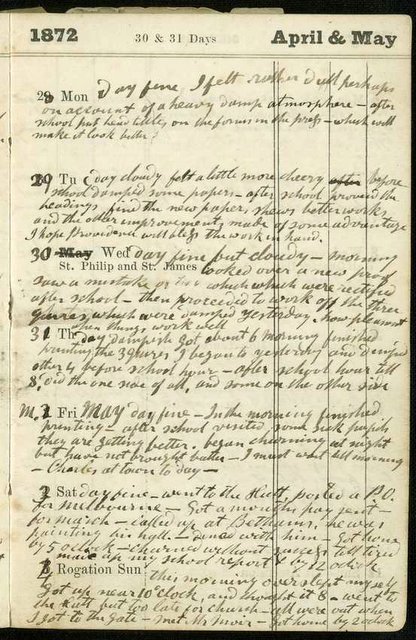 1872 30 & 31 Days April & May
29 Mon Day fine, I felt rather dull perhaps
on account of a heavy damp atmosphere - after
school put new titles, on the forms in the press - which will
make it look better.
29 Tu day cloudy felt a little more cheery after before
school damped some papers - after school proved the
headings find the new papers shews better works
and the other improvements, made of some advantage
I hope Providence will bless the work in hand.
30 May Wed day fine but cloudy - morning
St. Philip and St. James looked over a new proof
saw a mistake or two which were rectified
after school - then proceeded to work off the three
quires, which were damped yesterday. how pleasant
when things work well
31 Th day dampish got about 6 morning finished
printing the 3 quires I began to yesterday and damped
other 4 before school hour - after school hour till
8, did the one side of all, and some on the other side
M. 1 Fri May day fine - In the morning finished
printing - after school visited some sick pupils
they are getting better. began churning at night
but have not brought butter - I must wait till morning
- Charles at town to day -
2 Sat day fine - went to the Hutt, posted a P.O.
for Melbourne - Got a months pay sent -
for March - called up at Bethunes, he was
painting his hall - dined with him - Got home
by 5 o'clock - churned without success till tired
made up my school report by 12 o'clock
Rogation Sun this morning overslept myself
Got up near 10 o'clock, and thought it 8 - went to
the Hutt, but too late for church - all were out when
I got to the Gate - met Mr Moir - Got home by 2 o'clock